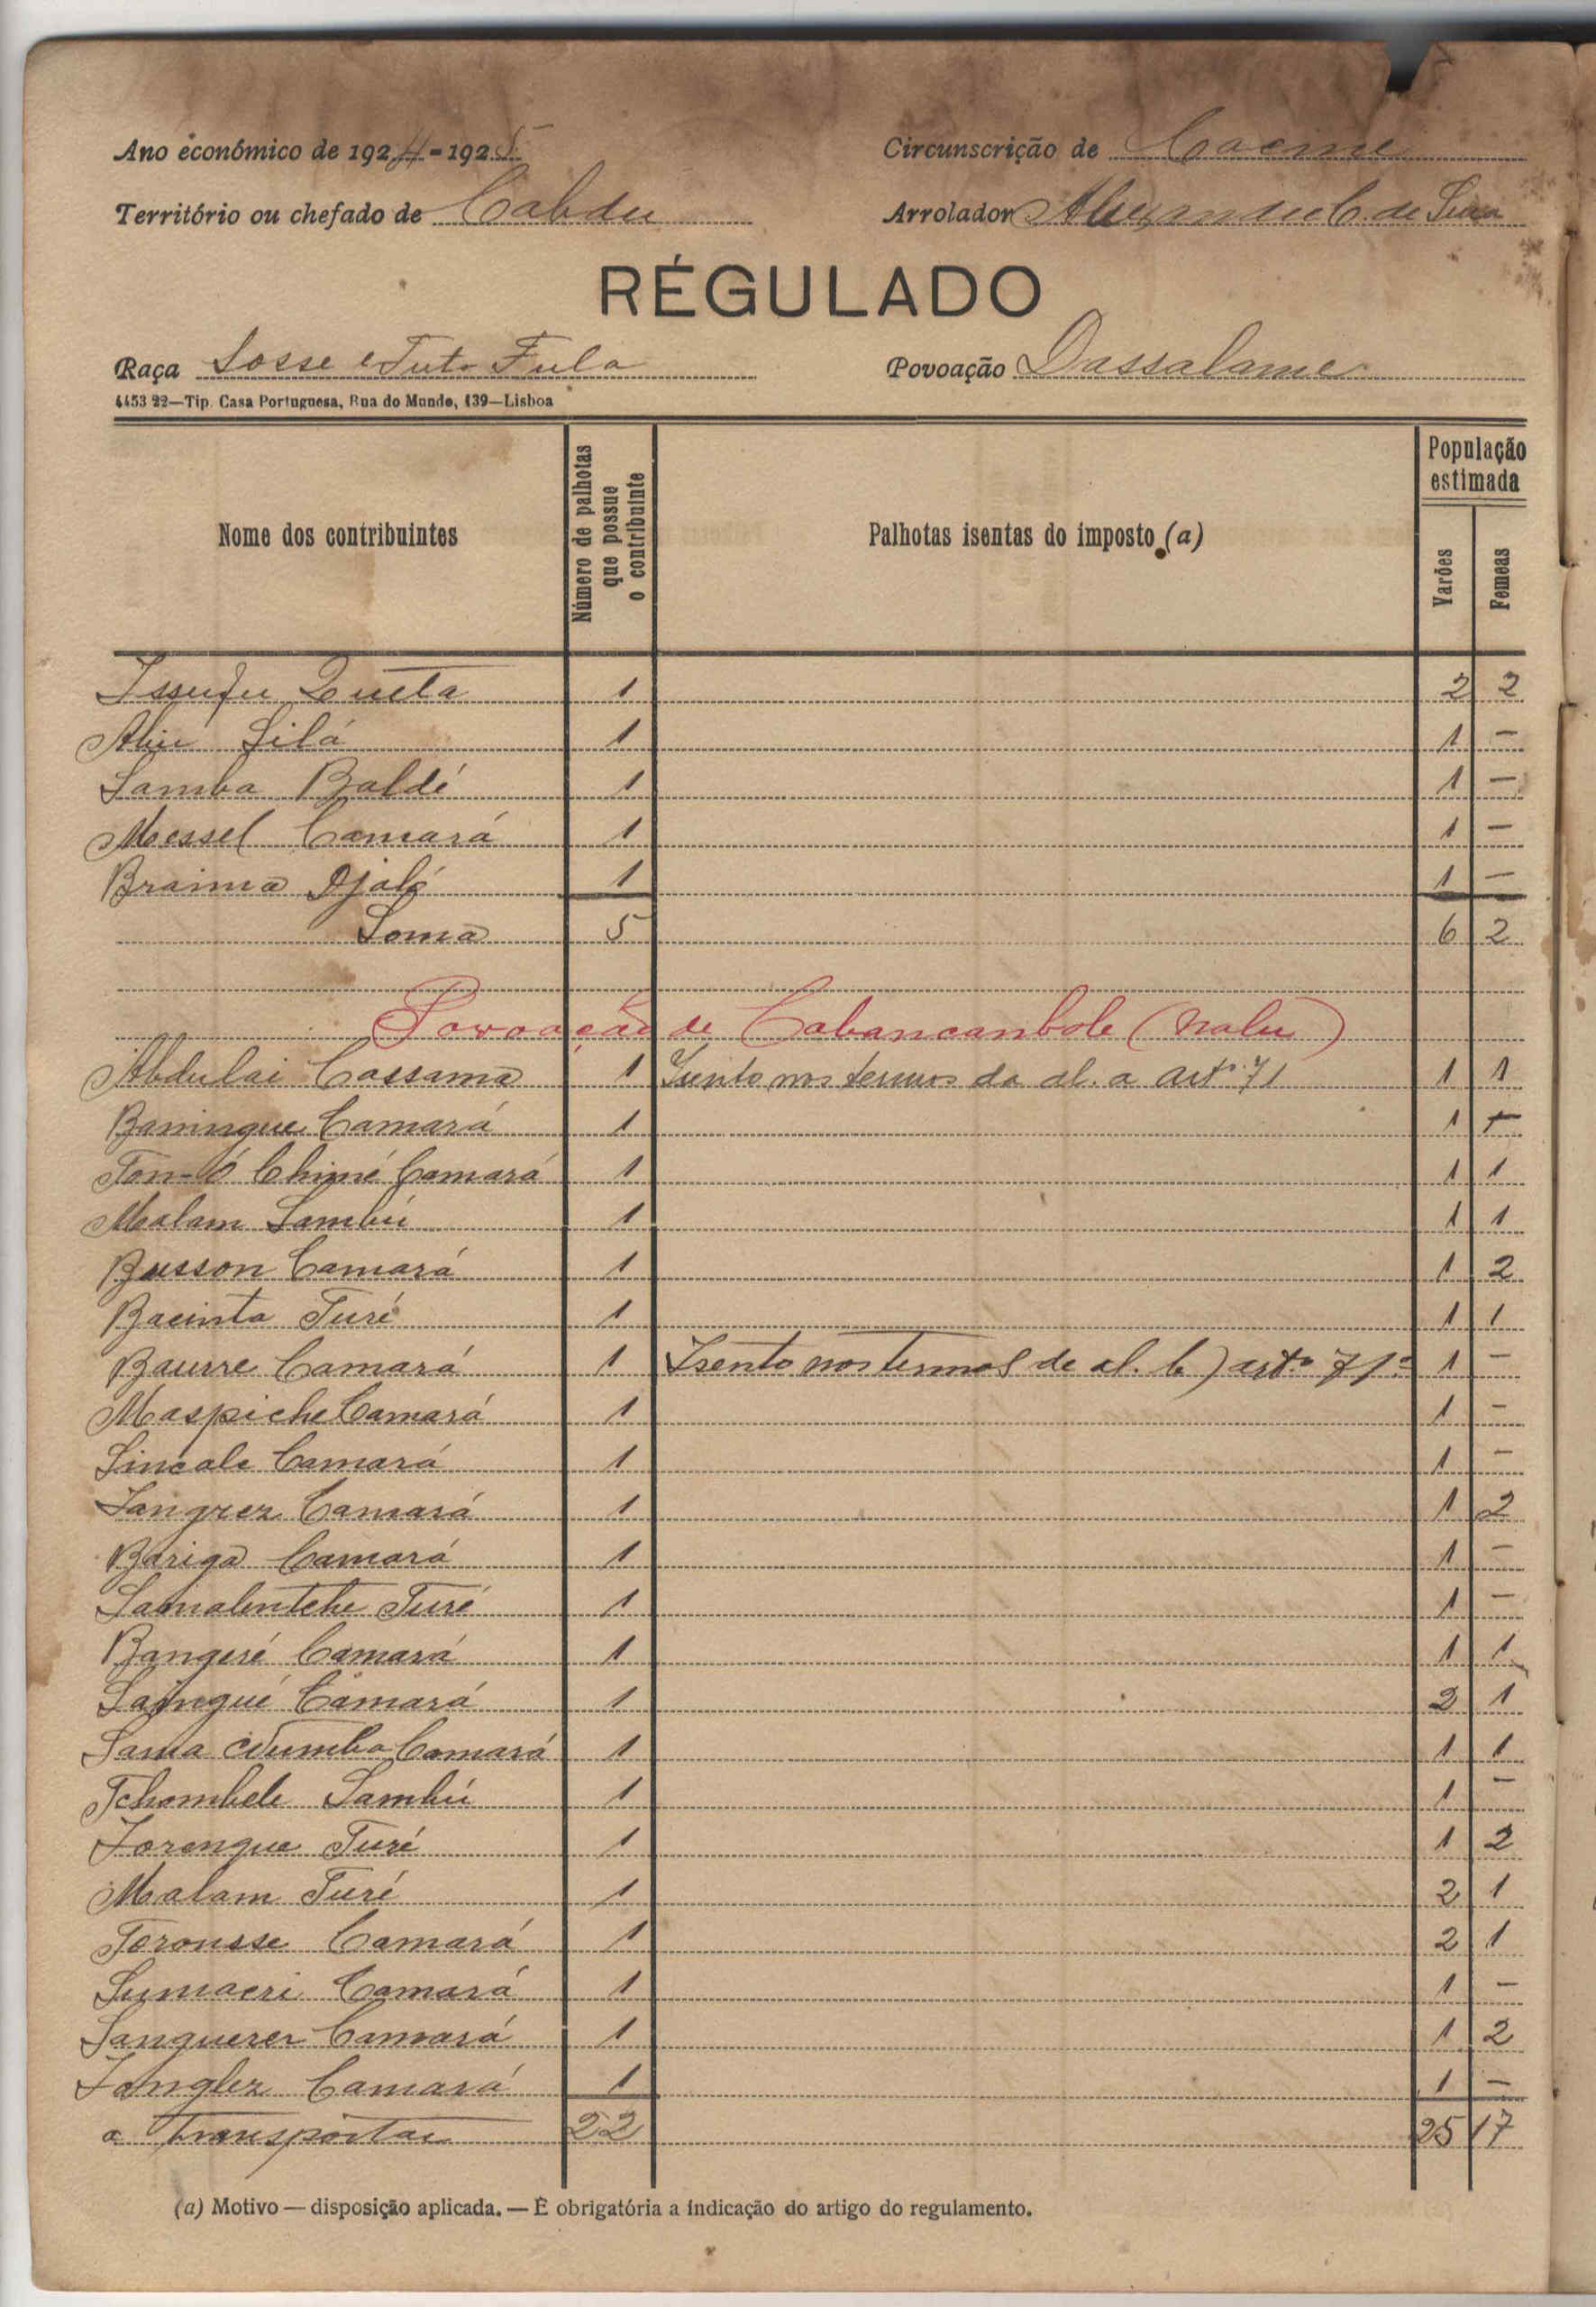 Ano económico de 1924-1925
Circunscrição de Cacine
Território ou chefado de Cabdu
Arrolador C. de
RÉGULADO
Raça Sosse e Futa Fula
Povoação Dassalame
4453 22—Tip. Casa Portuguesa, Rua do Mundo, 139—Lisboa
Nome dos contribuintes
Número de palhotas que possue o contribuinte
Palhotas isentas do imposto (a)
População estimada
Varões
Femeas
Issufu Queta 1 2 2
Aliu Silá 1 1 -
Samba Baldé 1 1 -
Messel Camará 1 1 -
Braima Djaló 1 1 -
Soma 5 6 2
Povoação de Cabancanbole (Nalu)
Abdulai Cassamá 1 Isento nos termos da al. a artº 71 1 1
Baningue Camará 1 1 +
Ton-ió Chimé Camará 1 1 1
Malam Sambú 1 1 1
Busson Camará 1 1 2
Bacinta Turé 1 1 1
Baurre Camará 1 Isento nos termos de al. b) artº 71º 1 -
Maspiche Camará 1 1 -
Sincale Camará 1 1 -
Sangrez Camará 1 1 2
Bariga Camará 1 1 -
Samalentche Turé 1 1 -
Bangeré Camará 1 1 1
Saingué Camará 1 2 1
Sama Numba Camará 1 1 1
Tchombele Sambú 1 1 -
Forengue Turé 1 1 2
Malam Turé 1 2 1
Forousse Camará 1 2 1
Sumacri Camará 1 1 -
Sanguerer Camará 1 1 2
Janglez Camará 1 1 -
a transportar 22 25 17
(a) Motivo — disposição aplicada. — É obrigatória a indicação do artigo do regulamento.